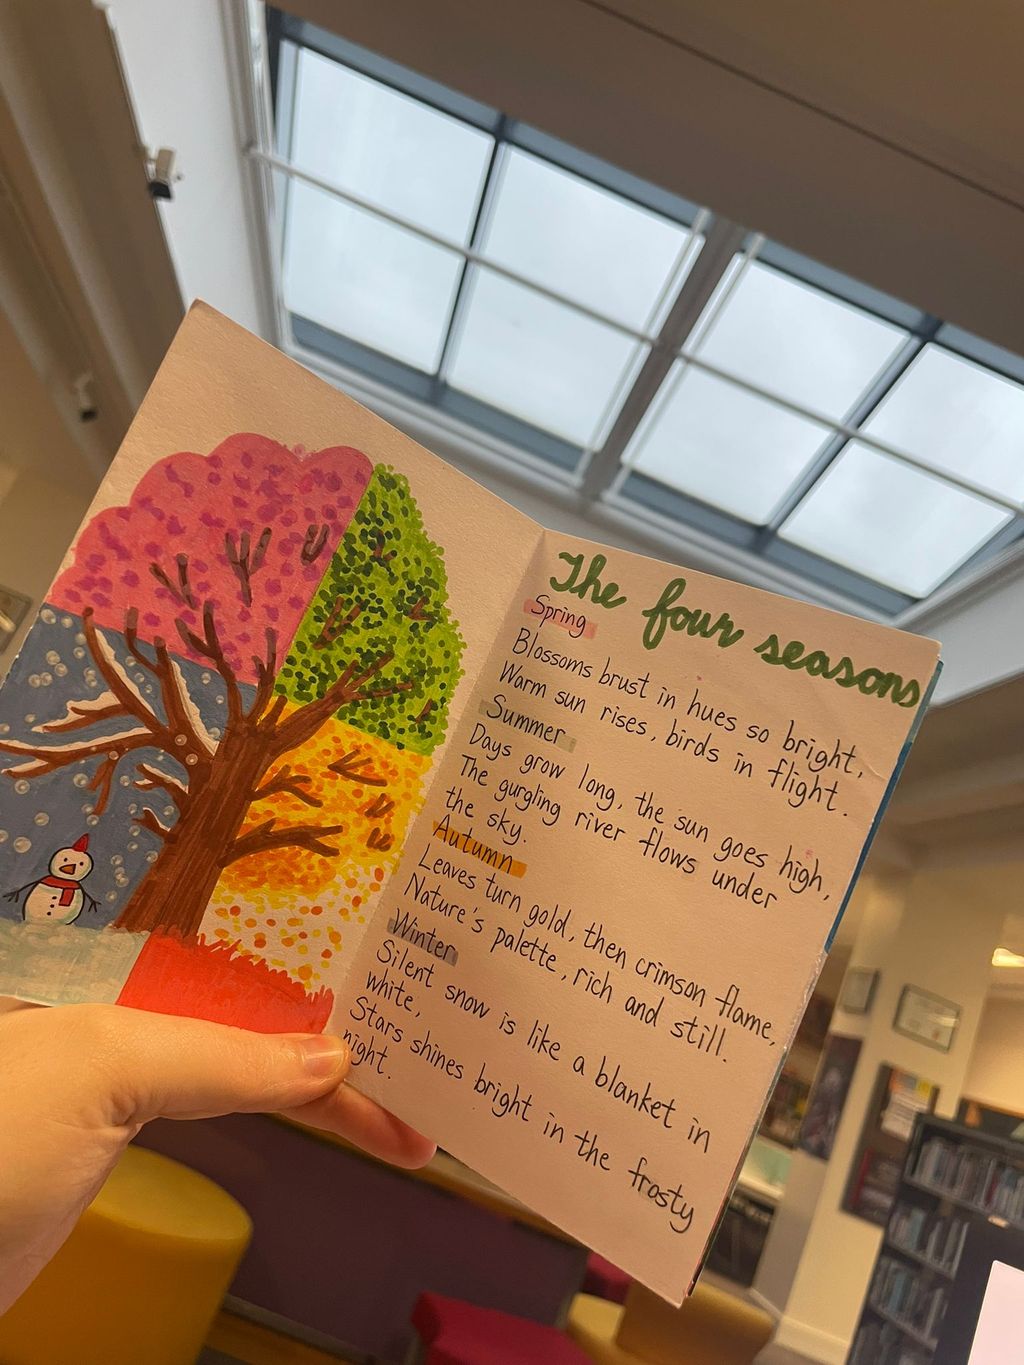 The four seasons
Spring
Blossoms brust in hues so bright,
Warm sun rises, birds in flight.
Summer
Days grow long, the sun goes high,
The gurgling river flows under
the sky.
Autumn
Leaves turn gold, then crimson flame,
Nature's palette, rich and still.
Winter
Silent snow is like a blanket in
white,
Stars shines bright in the frosty
night.